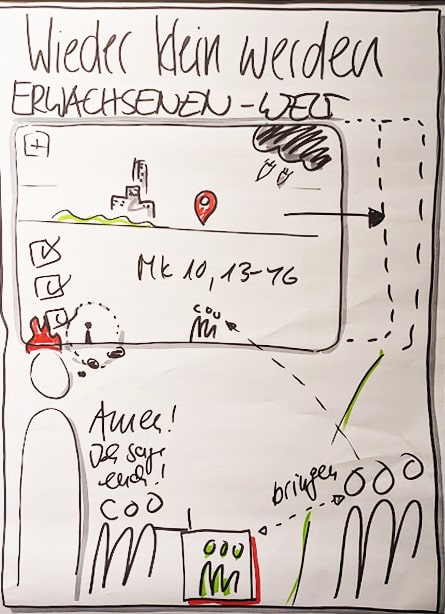 Wieder klein werden
ERWACHSENEN-WELT
Mk 10, 13-16
Amen!
Ich sage
euch!
bringen